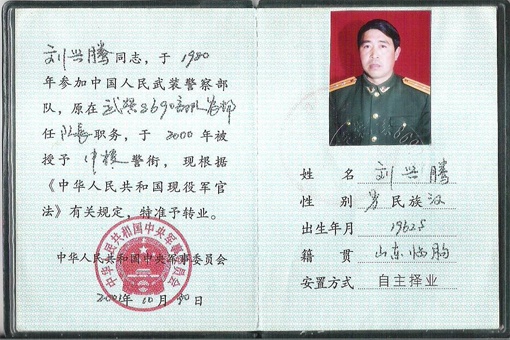 刘兴腾同志，于1980
年参加中国人民武装警察部
队，原在武警8690部队
任队长职务，于2000年被
授予中校警衔，现根据
《中华人民共和国现役军官
法》有关规定，特准予转业。
中华人民共和国中央军事委员会
2001年10月30日
中华人民共和国中央军事委员会
姓 名 刘兴腾
性 别 男 民族 汉
出生年月 1962.5
籍 贯 山东临朐
安置方式 自主择业